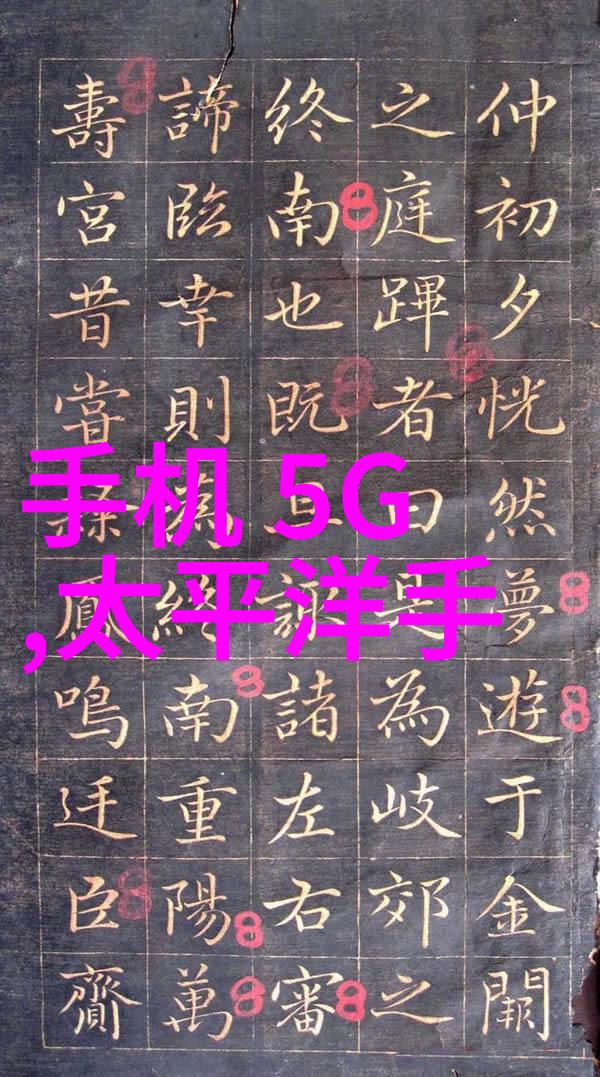 仲初夕恍然夢遊于金闕
之庭蹕者曰是為岐郊之
終南也既旦諸左右審
諦臨幸則為終南重陽萬
壽宮昔嘗鳳鳴廷臣齎
手机 5G
,太平洋手